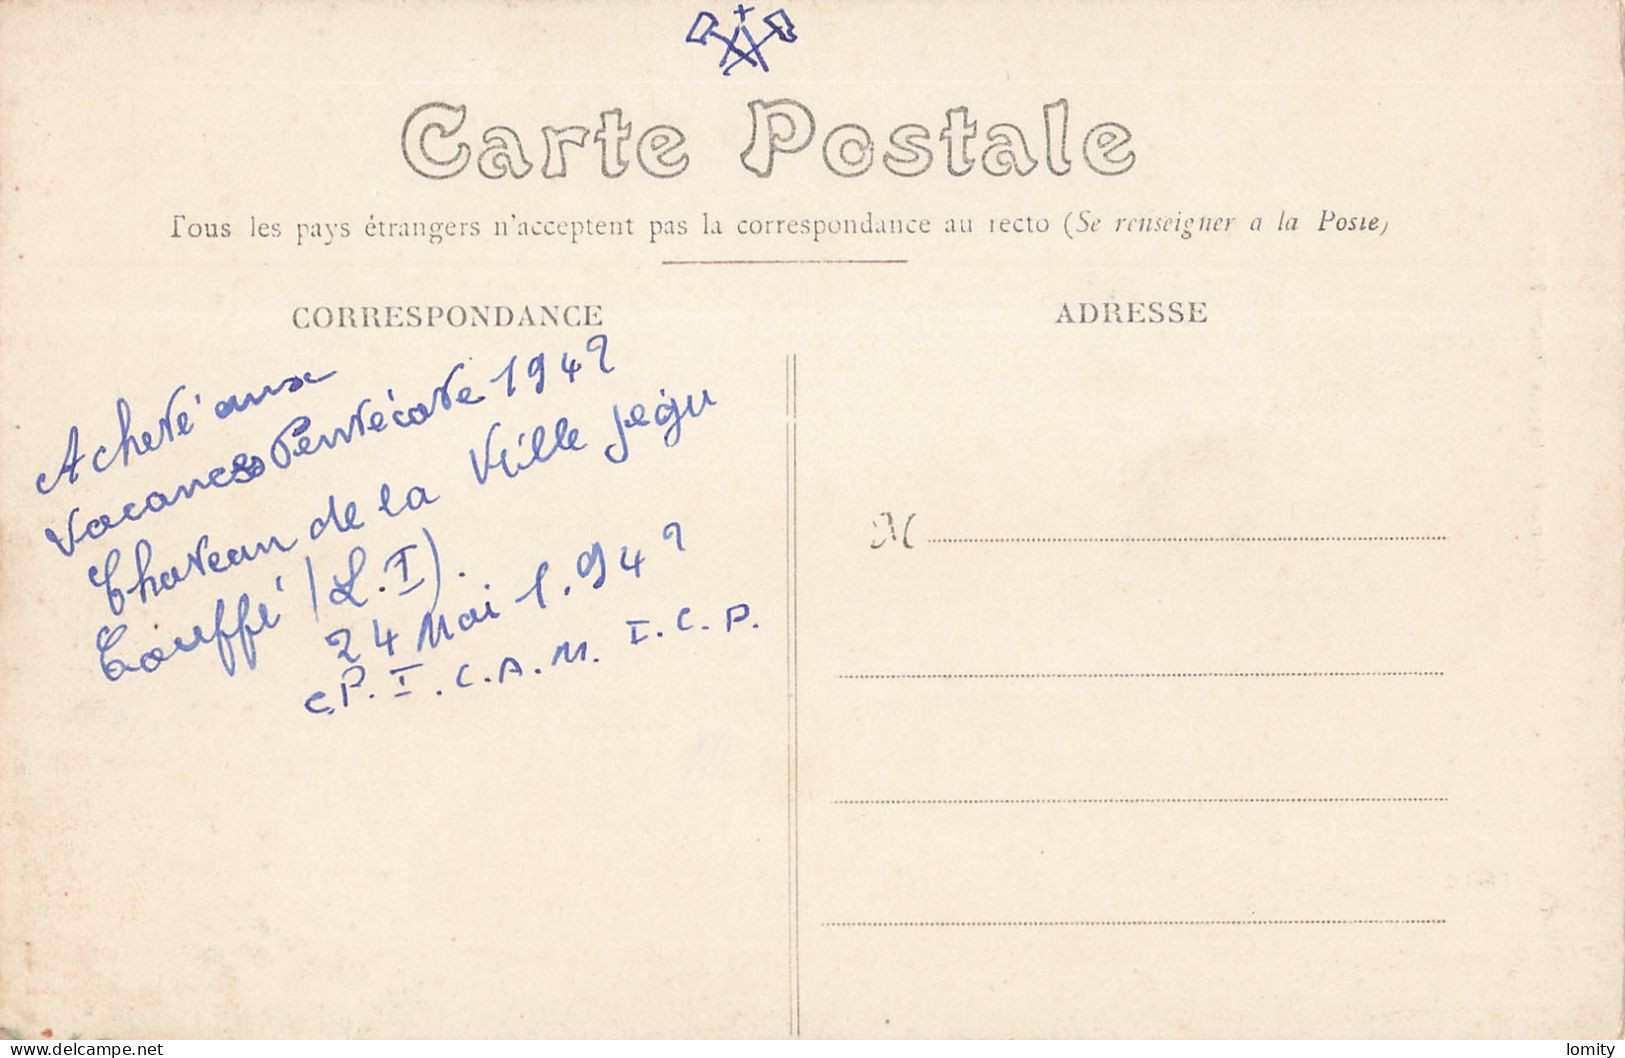 Carte Postale
Tous les pays étrangers n'acceptent pas la correspondance au recto (Se renseigner a la Poste)
CORRESPONDANCE
ADRESSE
Acheté aux
vacances Pentécote 1942
Chateau de la Ville Jégu
Couffé (L.I).
24 Mai 1.942
C.P.I.C.A.M. I.C.P.
M
delcampe.net
lomity